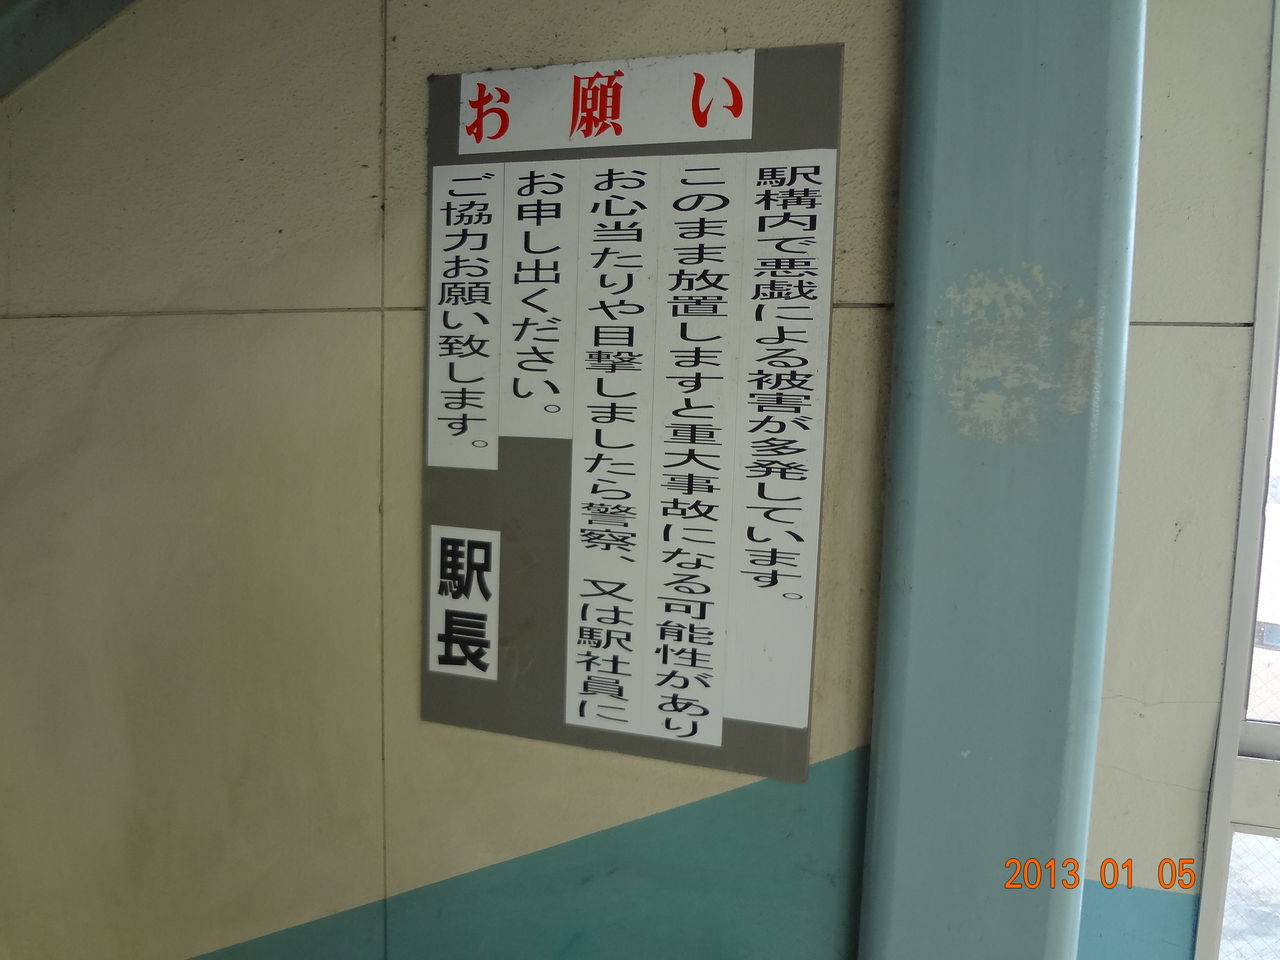 お願い
駅構内で悪戯による被害が多発しています。
このまま放置しますと重大事故になる可能性があり
お心当たりや目撃しましたら警察、又は駅社員に
お申し出ください。
ご協力お願い致します。
駅長
2013 01 05